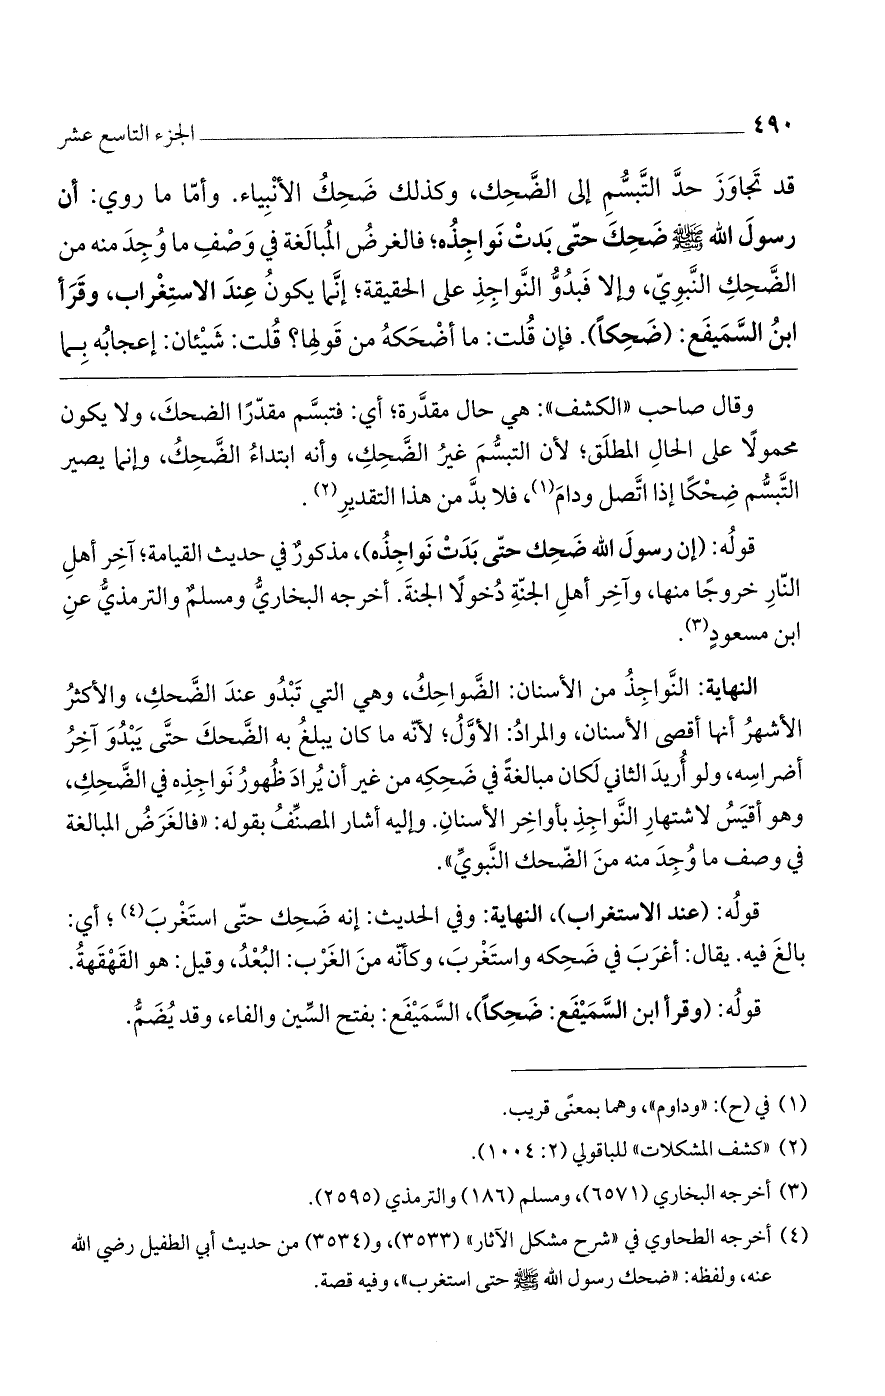 ٤٩٠ ــــــــــــــــــــ الجزء التاسع عشر
قد تَجاوَزَ حدَّ التَّبسُّمِ إلى الضَّحِك، وكذلك ضَحِكُ الأنْبِياء. وأمّا ما روي: أن
رسولَ الله ﷺ ضَحِكَ حتّى بَدتْ نَواجِذُه؛ فالغرضُ المُبالَغة في وَصْفِ ما وُجِدَ منه من
الضَّحِكِ النَّبوِيّ، وإلا فَبدُوُّ النَّواجِذِ على الحقيقة؛ إنَّما يكونُ عِندَ الاستِغراب، وقَرَأ
ابنُ السَّمَيفَع: (ضَحِكاً). فإن قُلت: ما أضْحَكهُ من قَولِها؟ قُلت: شَيْئان: إعجابُه بِما
وقال صاحب «الكشف»: هي حال مقدَّرة؛ أي: فتبسَّم مقدّرًا الضحكَ، ولا يكون
محمولًا على الحالِ المطلَق؛ لأن التبسُّمَ غيرُ الضَّحِكِ، وأنه ابتداءُ الضَّحِكُ، وإنما يصير
التَّبسُّم ضِحْكًا إذا اتَّصل ودامَ(١)، فلا بدَّ من هذا التقديرِ(٢).
قولُه: (إن رسولَ الله ضَحِك حتّى بَدَتْ نَواجِذُه)، مذكورٌ في حديث القيامة؛ آخِر أهلِ
النّارِ خروجًا منها، وآخِر أهلِ الجنّةِ دُخولًا الجنةَ. أخرجه البخاريُّ ومسلمٌ والترمذيُّ عنِ
ابن مسعودٍ(٣).
النهاية: النَّواجِذُ من الأسنان: الضَّواحِكُ، وهي التي تَبْدُو عندَ الضَّحكِ، والأكثرُ
الأشهرُ أنها أقصى الأسنان، والمرادُ: الأوَّلُ؛ لأنّه ما كان يبلغُ به الضَّحكَ حتَّى يَبْدُوَ آخِرُ
أضراسِه، ولو أُريدَ الثاني لَكان مبالغةً في ضَحكِه من غير أن يُرادَ ظُهورُ نَواجذِه في الضَّحِكِ،
وهو أقيَسُ لاشتهارِ النَّواجِذِ بأواخِر الأسنانِ. وإليه أشار المصنِّفُ بقوله: «فالغَرَضُ المبالغة
في وصف ما وُجِدَ منه منَ الضّحك النَّبويِّ».
قولُه: (عند الاستغراب)، النهاية: وفي الحديث: إنه ضَحِك حتّى استَغْربَ(٤)؛ أي:
بالغَ فيه. يقال: أغرَبَ في ضَحكِه واستَغْربَ، وكأنّه منَ الغَرْب: البُعْدُ، وقيل: هو القَهْقَهةُ.
قولُه: (وقرأ ابن السَّمَيْفَع: ضَحِكاً)، السَّمَيْفَع: بفتح السِّين والفاء، وقد يُضَمُّ.
(١) في (ح): «وداوم»، وهما بمعنًى قريب.
(٢) «كشف المشكلات» للباقولي (٢: ١٠٠٤).
(٣) أخرجه البخاري (٦٥٧١)، ومسلم (١٨٦) والترمذي (٢٥٩٥).
(٤) أخرجه الطحاوي في «شرح مشكل الآثار» (٣٥٣٣)، و(٣٥٣٤) من حديث أبي الطفيل رضي الله
عنه، ولفظه: «ضحك رسول الله ﷺ حتى استغرب»، وفيه قصة.